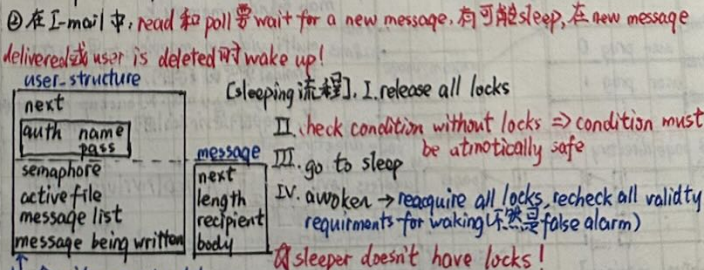 ②在I-mail中,read和poll要wait for a new message,有可能sleep,在new message
delivered或user is deleted时wake up!
user_structure
next
auth name
pass
semaphore
active file
message list
message being written
message
next
length
recipient
body
[sleeping流程]. I. release all locks
II. check condition without locks ⇒ condition must
be atmotically safe
III. go to sleep
IV. awoken → reacquire all locks, recheck all validty
requirments for waking (不然是false alarm)
sleeper doesn't have locks!